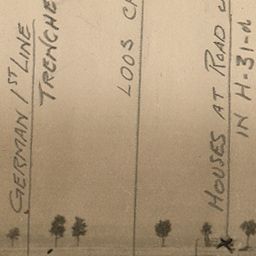 GERMAN 1ST LINE
TRENCHE
LOOS
HOUSES AT ROAD
IN H-31-d